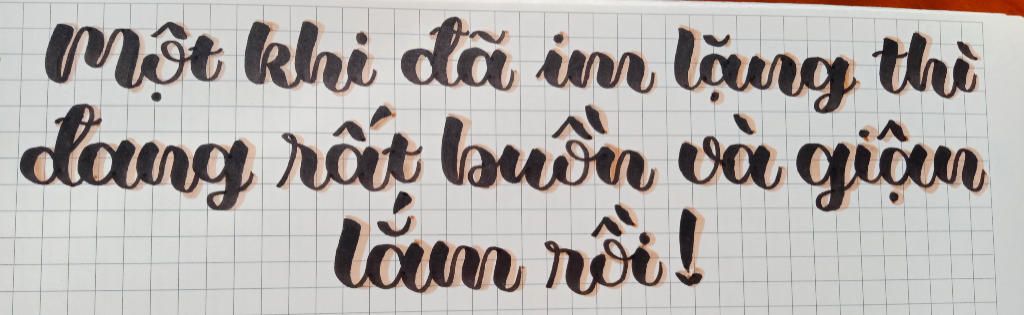 Một khi đã im lặng thì
đang rất buồn và giận
lắm rồi!